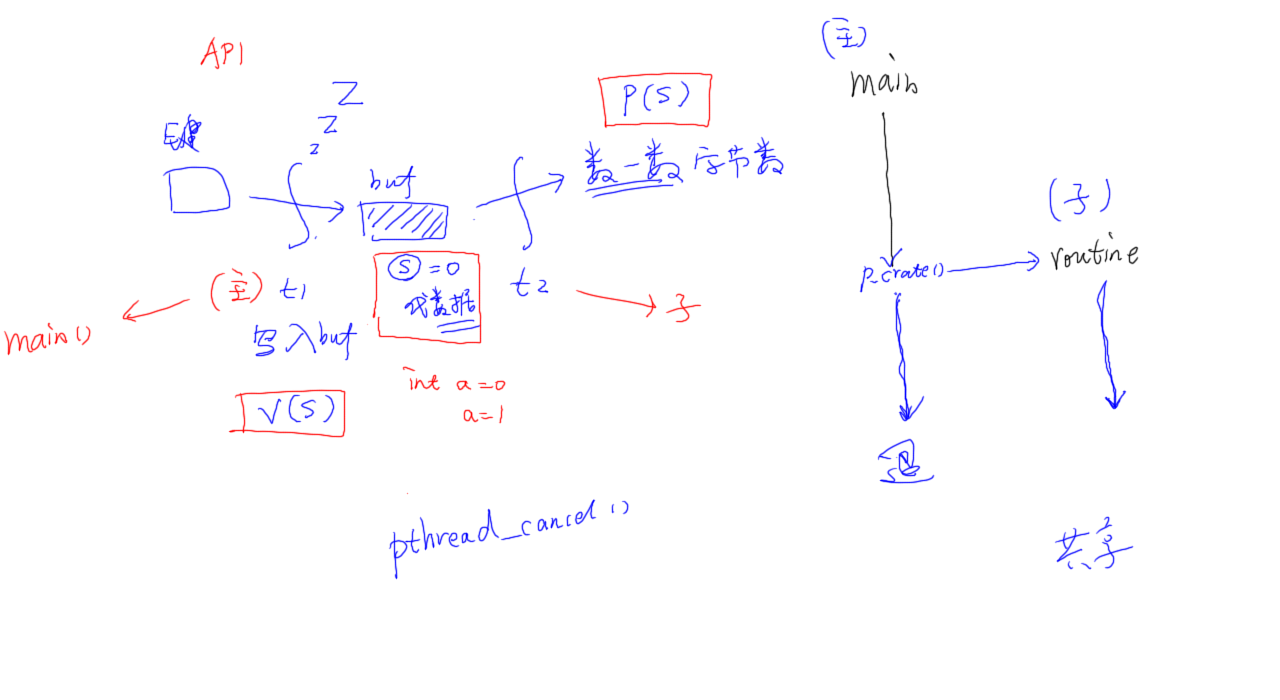 API
z
Z
Z
buf
P(S)
数一数 字节数
(主) t1
main()
写入buf
V(S)
S=0
代数据
t2
子
int a=0
a=1
pthread_cancel()
(主)
main
p_crate()
(子)
routine
退
共享